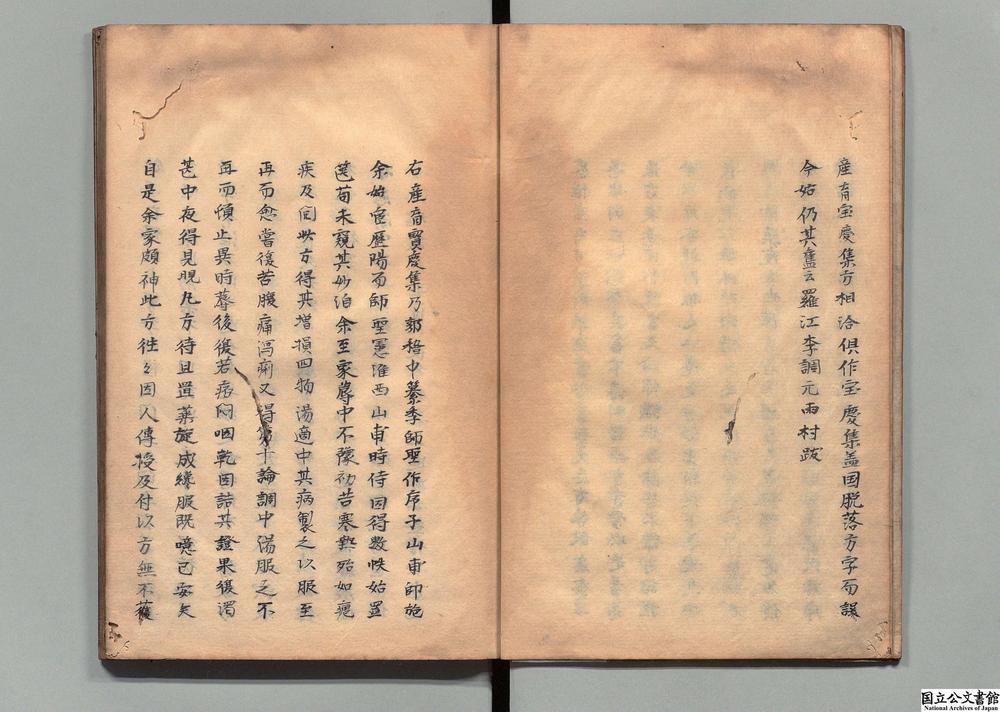 産育宝慶集方相洽俱作宝慶集盖因脱落方字而誤
今始仍其舊云羅江李調元雨村跋
右産育寶慶集乃郭稽中纂季師聖作序子山甫師施
余始官歷陽而師聖憲淮西山甫時侍因得數帙始置
篋荀未窺其妙洎余至家蓐中不豫初苦寒熱殆如瘧
疾及囘此方得其増損四物湯適中其病製之以服至
再而愈嘗後苦腹痛瀉痢又得第十論調中湯服之不
再而頓止異時蓐後復若痞悶咽乾因詰其證果後渴
甚中夜得見晛丸方待旦置藥旋成綠服既噫已安矣
自是余家頗神此方徃々因人傳授及付以方無不獲
国立公文書館
National Archives of Japan